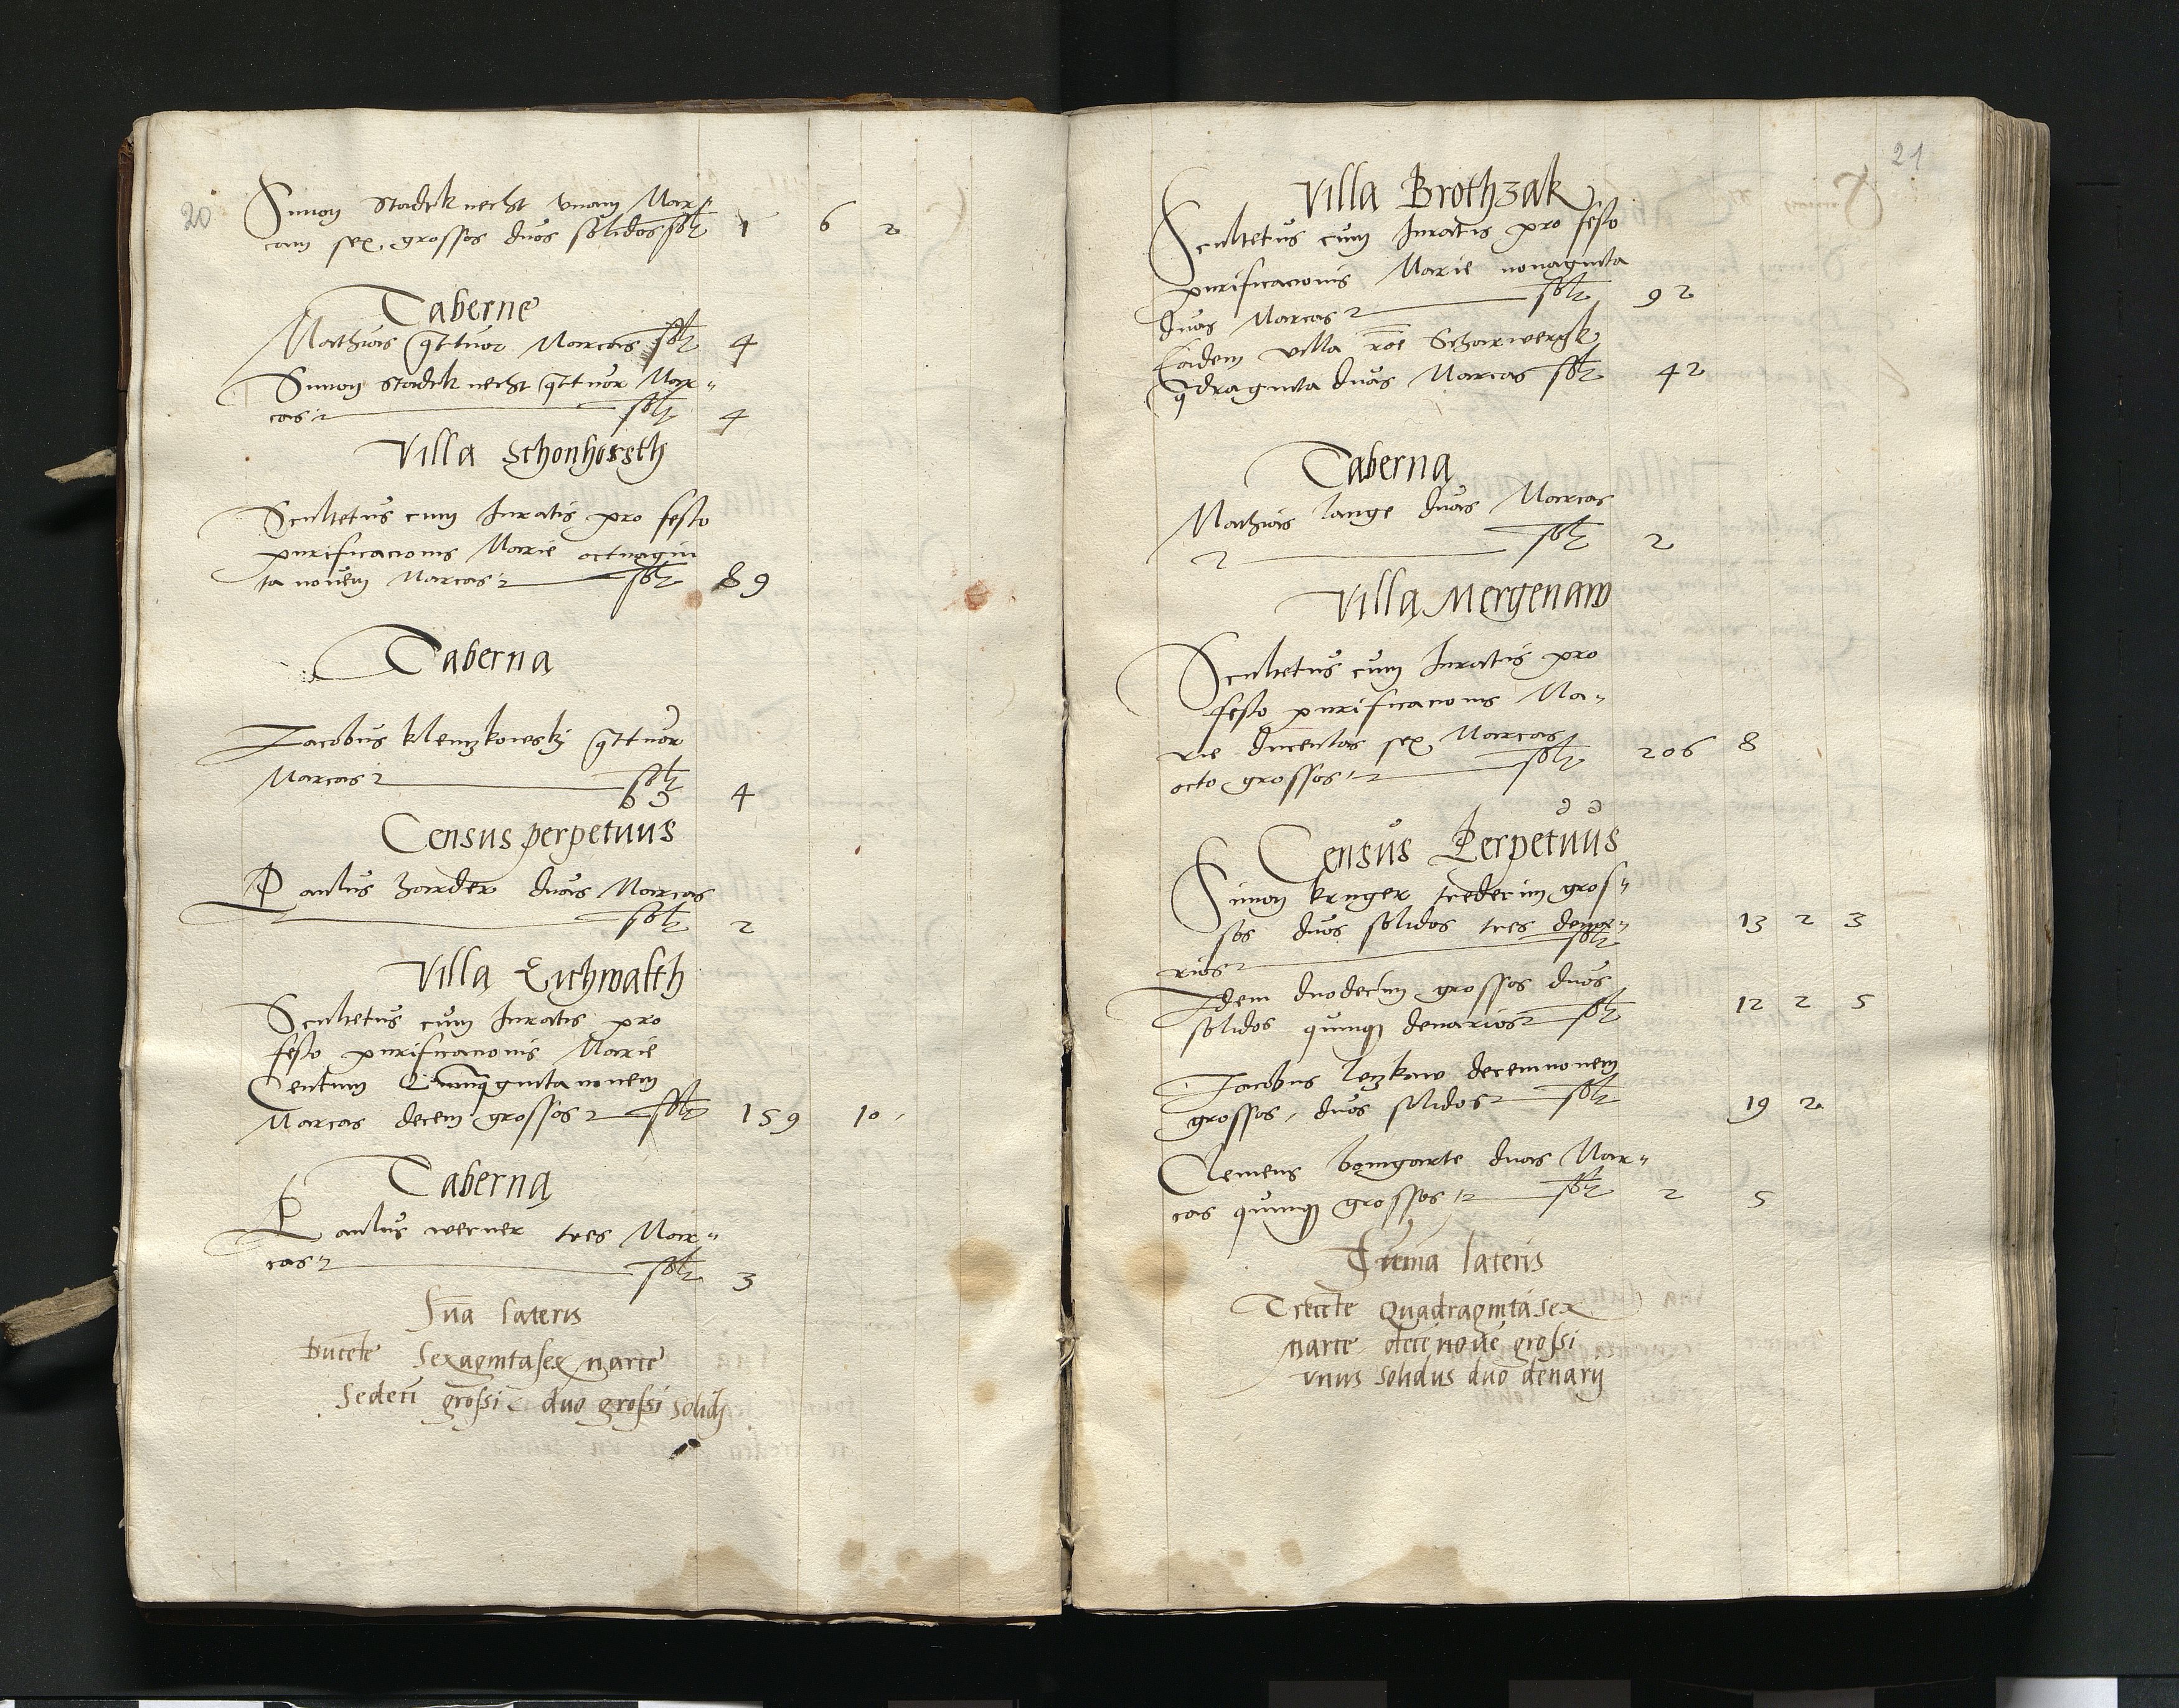 20
Simon Stadtknecht vnam Mar„
cam sex grossos duos solidos sol 1 6 2
Taberne
Mathias qttuor Marcas sol 4
Simon Stadtknecht qttuor Mar„
cas sol 4
Villa Schonhorsth
Scultetus cum Juratis pro festo
purificacionis Marie octuagin
ta novem Marcas sol 89
Taberna
Jacobus klemzkowskj qttuor
Marcas sol 4
Census perpetuus
Paulus harder duas Marcas
sol 2
Villa Eichwalth
Scultetus cum Juratis pro
festo purificacionis Marie
Centum Quinqginta novem
Marcas decem grossos sol 159 10
Taberna
Paulus werner tres Mar„
cas sol 3
Sūa lateris
Ducēte Sexagintasex marce
Sedeci grossi duo grossi solidi
21
Villa Brothzak
Scultetus cum Juratis pro festo
purificacionis Marie nonaginta
duas Marcas sol 92
Eadem villa rōe Scharwergk
qdraginta duas Marcas sol 42
Taberna
Mathias lange duas Marcas
sol 2
Villa Mergenaw
Scultetus cum Juratis pro
festo purificacionis Ma„
rie ducentas sex Marcas
octo grossos sol 206 8
Census Perpetuus
Simon kruger tredecim gros„
sos duos solidos tres dena„
rios sol 13 2 3
Idem duodecim grossos duos
solidos quinq denarios sol 12 2 5
Jacobus lezkaw decemnovem
grossos duos solidos sol 19 2
Clemens bomgarte duas Mar„
cas quinq grossos sol 2 5
Suma lateris
Trecēte Quadragintasex
marce decē novē grossi
vnus solidus duo denarij